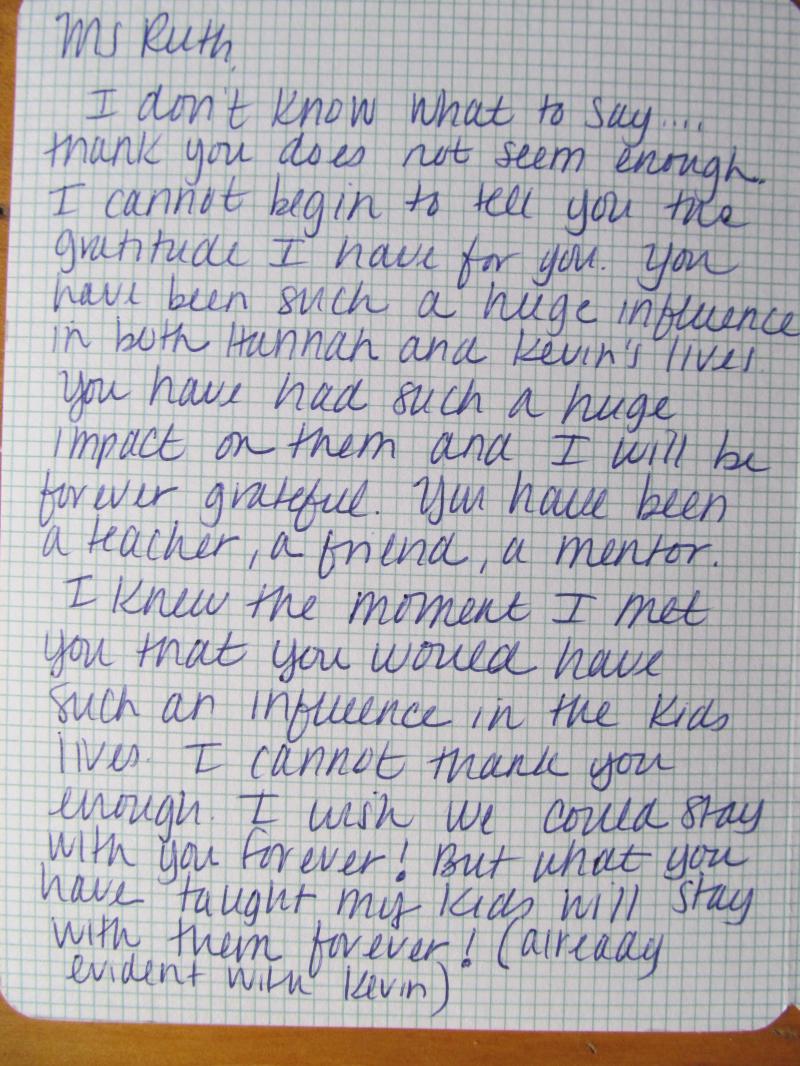 Ms Ruth,
I don't know what to say....
thank you does not seem enough.
I cannot begin to tell you the
gratitude I have for you. You
have been such a huge influence
in both Hannah and Kevin's lives.
You have had such a huge
impact on them and I will be
forever grateful. You have been
a teacher, a friend, a mentor.
I knew the moment I met
you that you would have
such an influence in the kids
lives. I cannot thank you
enough. I wish we could stay
with you forever! But what you
have taught my kids will stay
with them forever! (already
evident with Kevin)